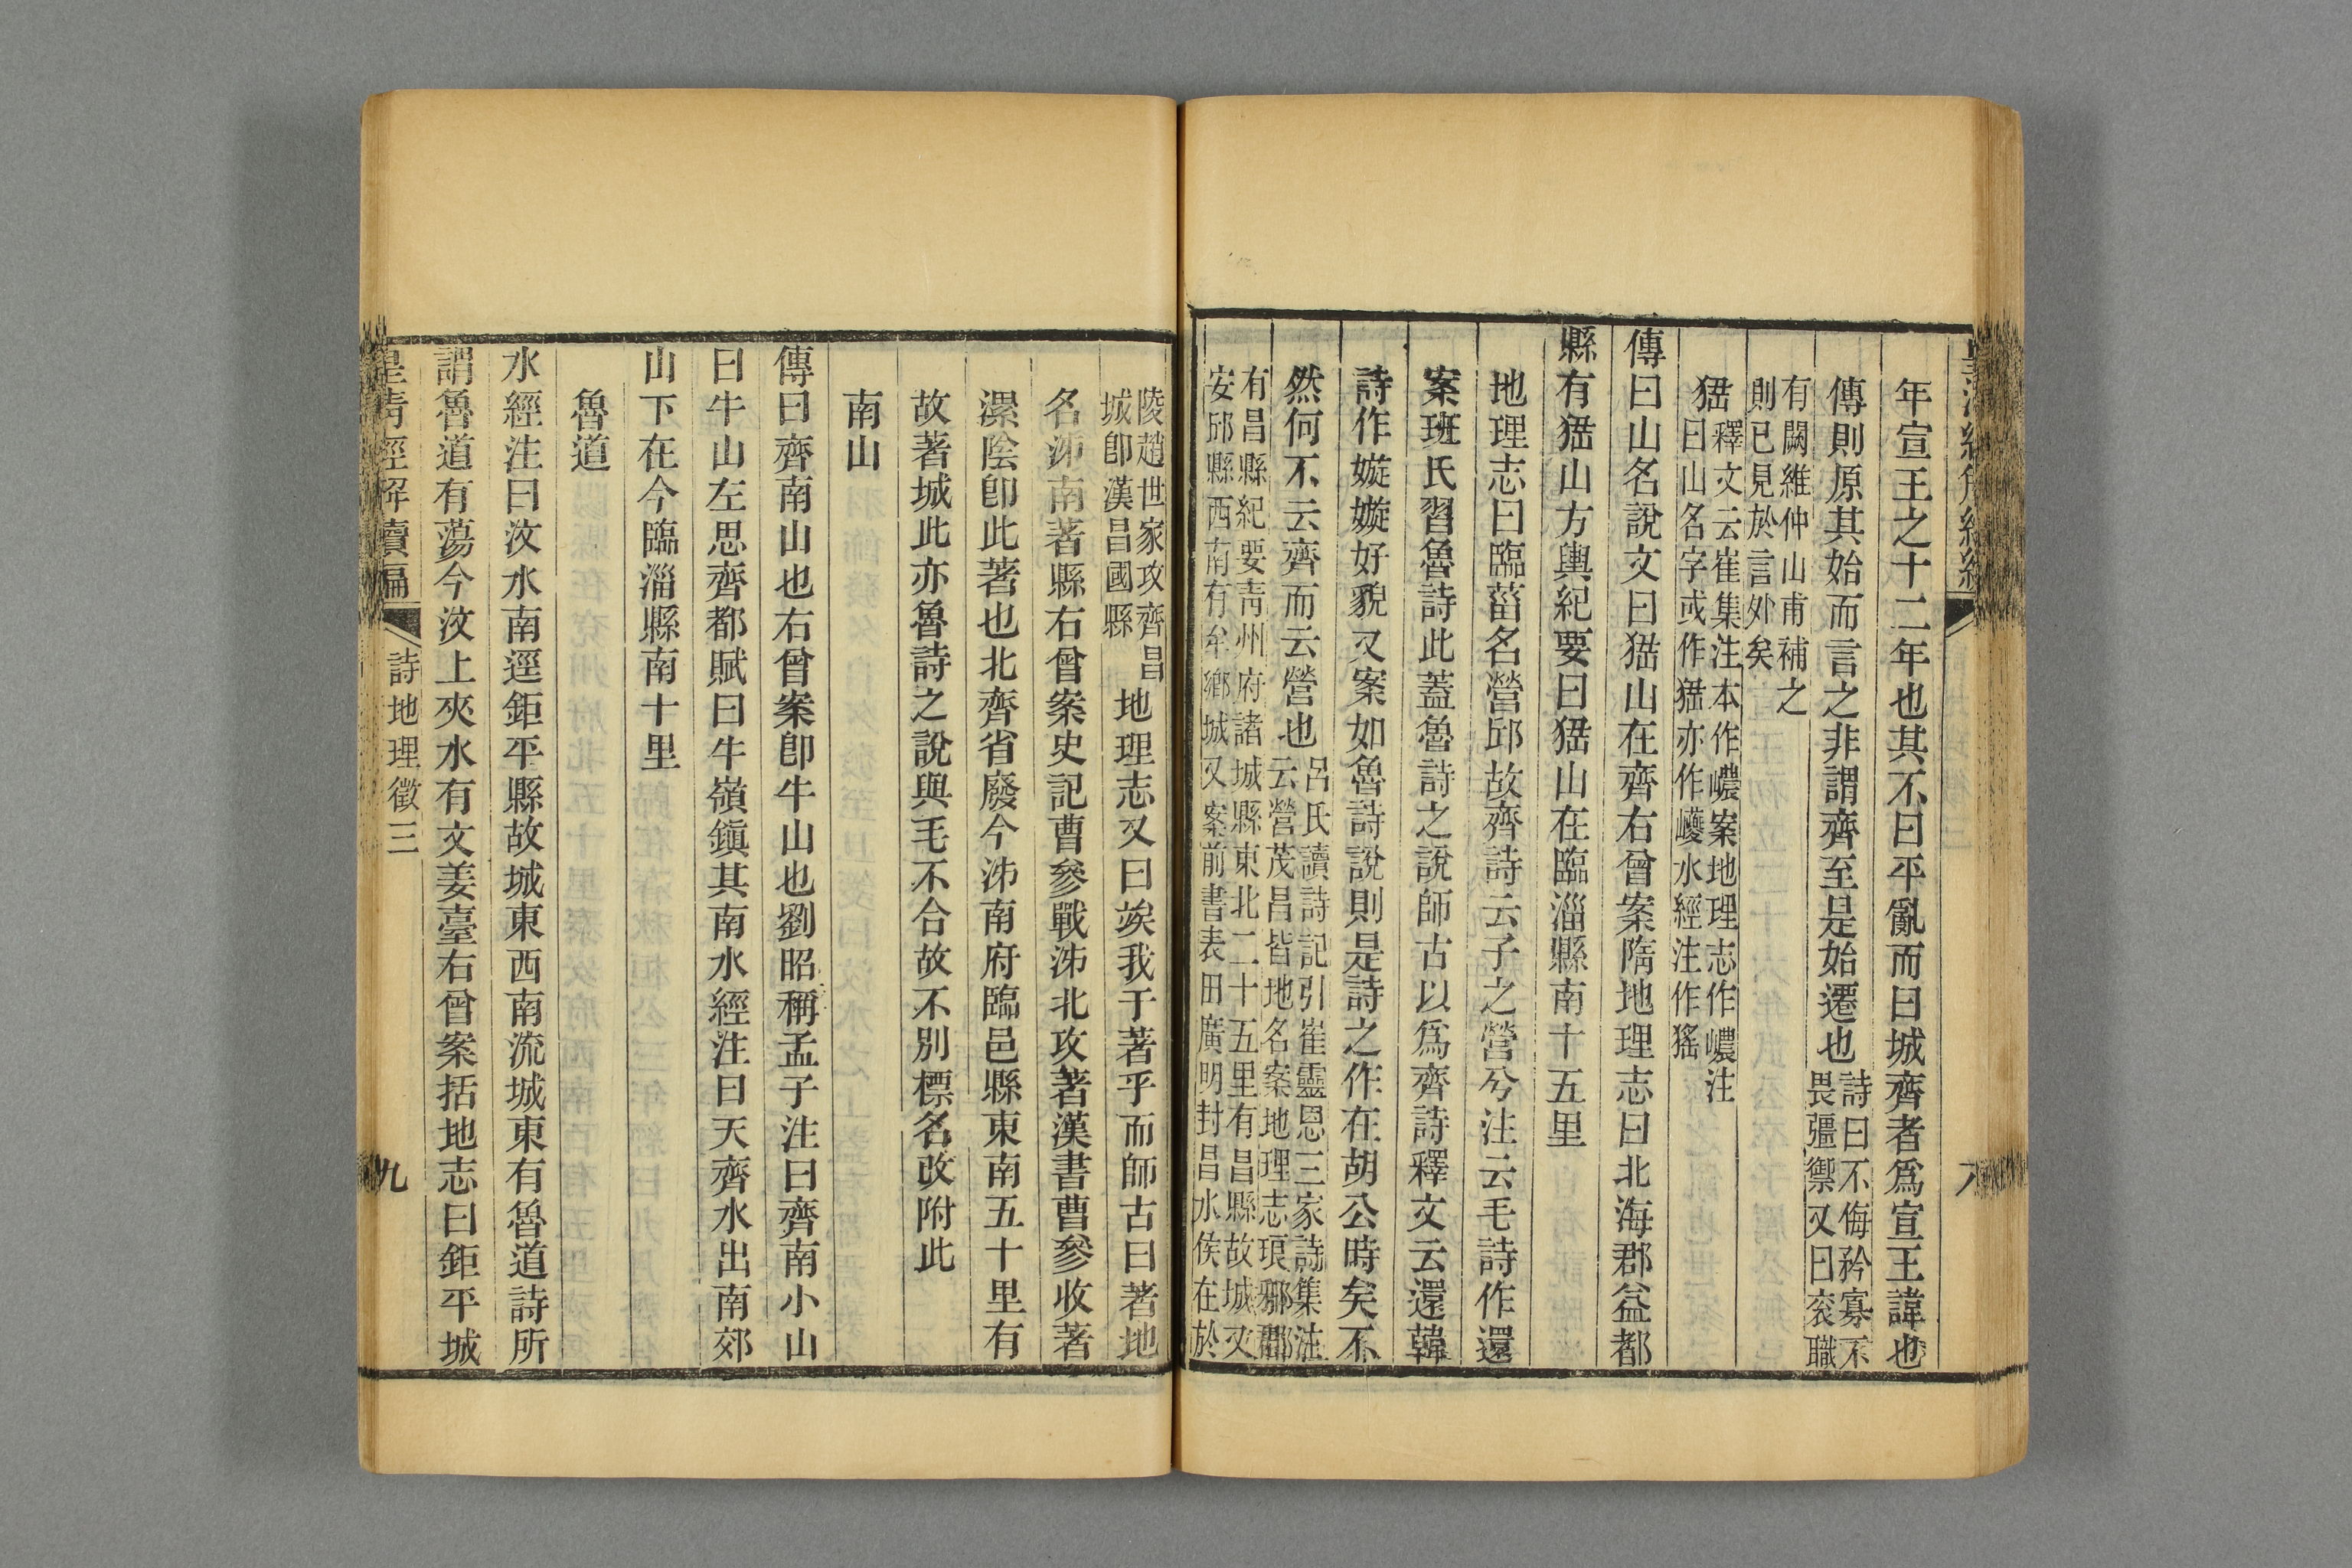 年宣王之十二年也其不曰平亂而曰城齊者爲宣王諱也
傳則原其始而言之非謂齊至是始遷也詩曰不侮矜寡不
畏彊禦又曰衮職
有闕維仲山甫補之
則已見於言外矣
猺釋文云崔集注本作嶩案地理志作嶩注
曰山名字或作猺亦作巙水經注作猺
傳曰山名說文曰猺山在齊右曾案隋地理志曰北海郡益都
縣有猺山方輿紀要曰猺山在臨淄縣南十五里
地理志曰臨菑名營邱故齊詩云子之營兮注云毛詩作還
案班氏習魯詩此蓋魯詩之說師古以爲齊詩釋文云還韓
詩作嫙嫙好貌又案如魯詩說則是詩之作在胡公時矣不
然何不云齊而云營也呂氏讀詩記引崔靈恩三家詩集注
云營茂昌皆地名案地理志琅邪郡
有昌縣紀要靑州府諸城縣東北二十五里有昌縣故城又
安邱縣西南有牟鄉城又案前書表田廣明封昌水侯在於
陵趙世家攻齊昌
城卽漢昌國縣地理志又曰竢我于著乎而師古曰著地
名泲南著縣右曾案史記曹參戰泲北攻著漢書曹參收著
漯陰卽此著也北齊省廢今泲南府臨邑縣東南五十里有
故著城此亦魯詩之說與毛不合故不別標名改附此
南山
傳曰齊南山也右曾案卽牛山也劉昭稱孟子注曰齊南小山
曰牛山左思齊都賦曰牛嶺鎭其南水經注曰天齊水出南郊
山下在今臨淄縣南十里
魯道
水經注曰汶水南逕鉅平縣故城東西南流城東有魯道詩所
謂魯道有蕩今汶上夾水有文姜臺右曾案括地志曰鉅平城
皇淸經解續編
詩地理徵三
九